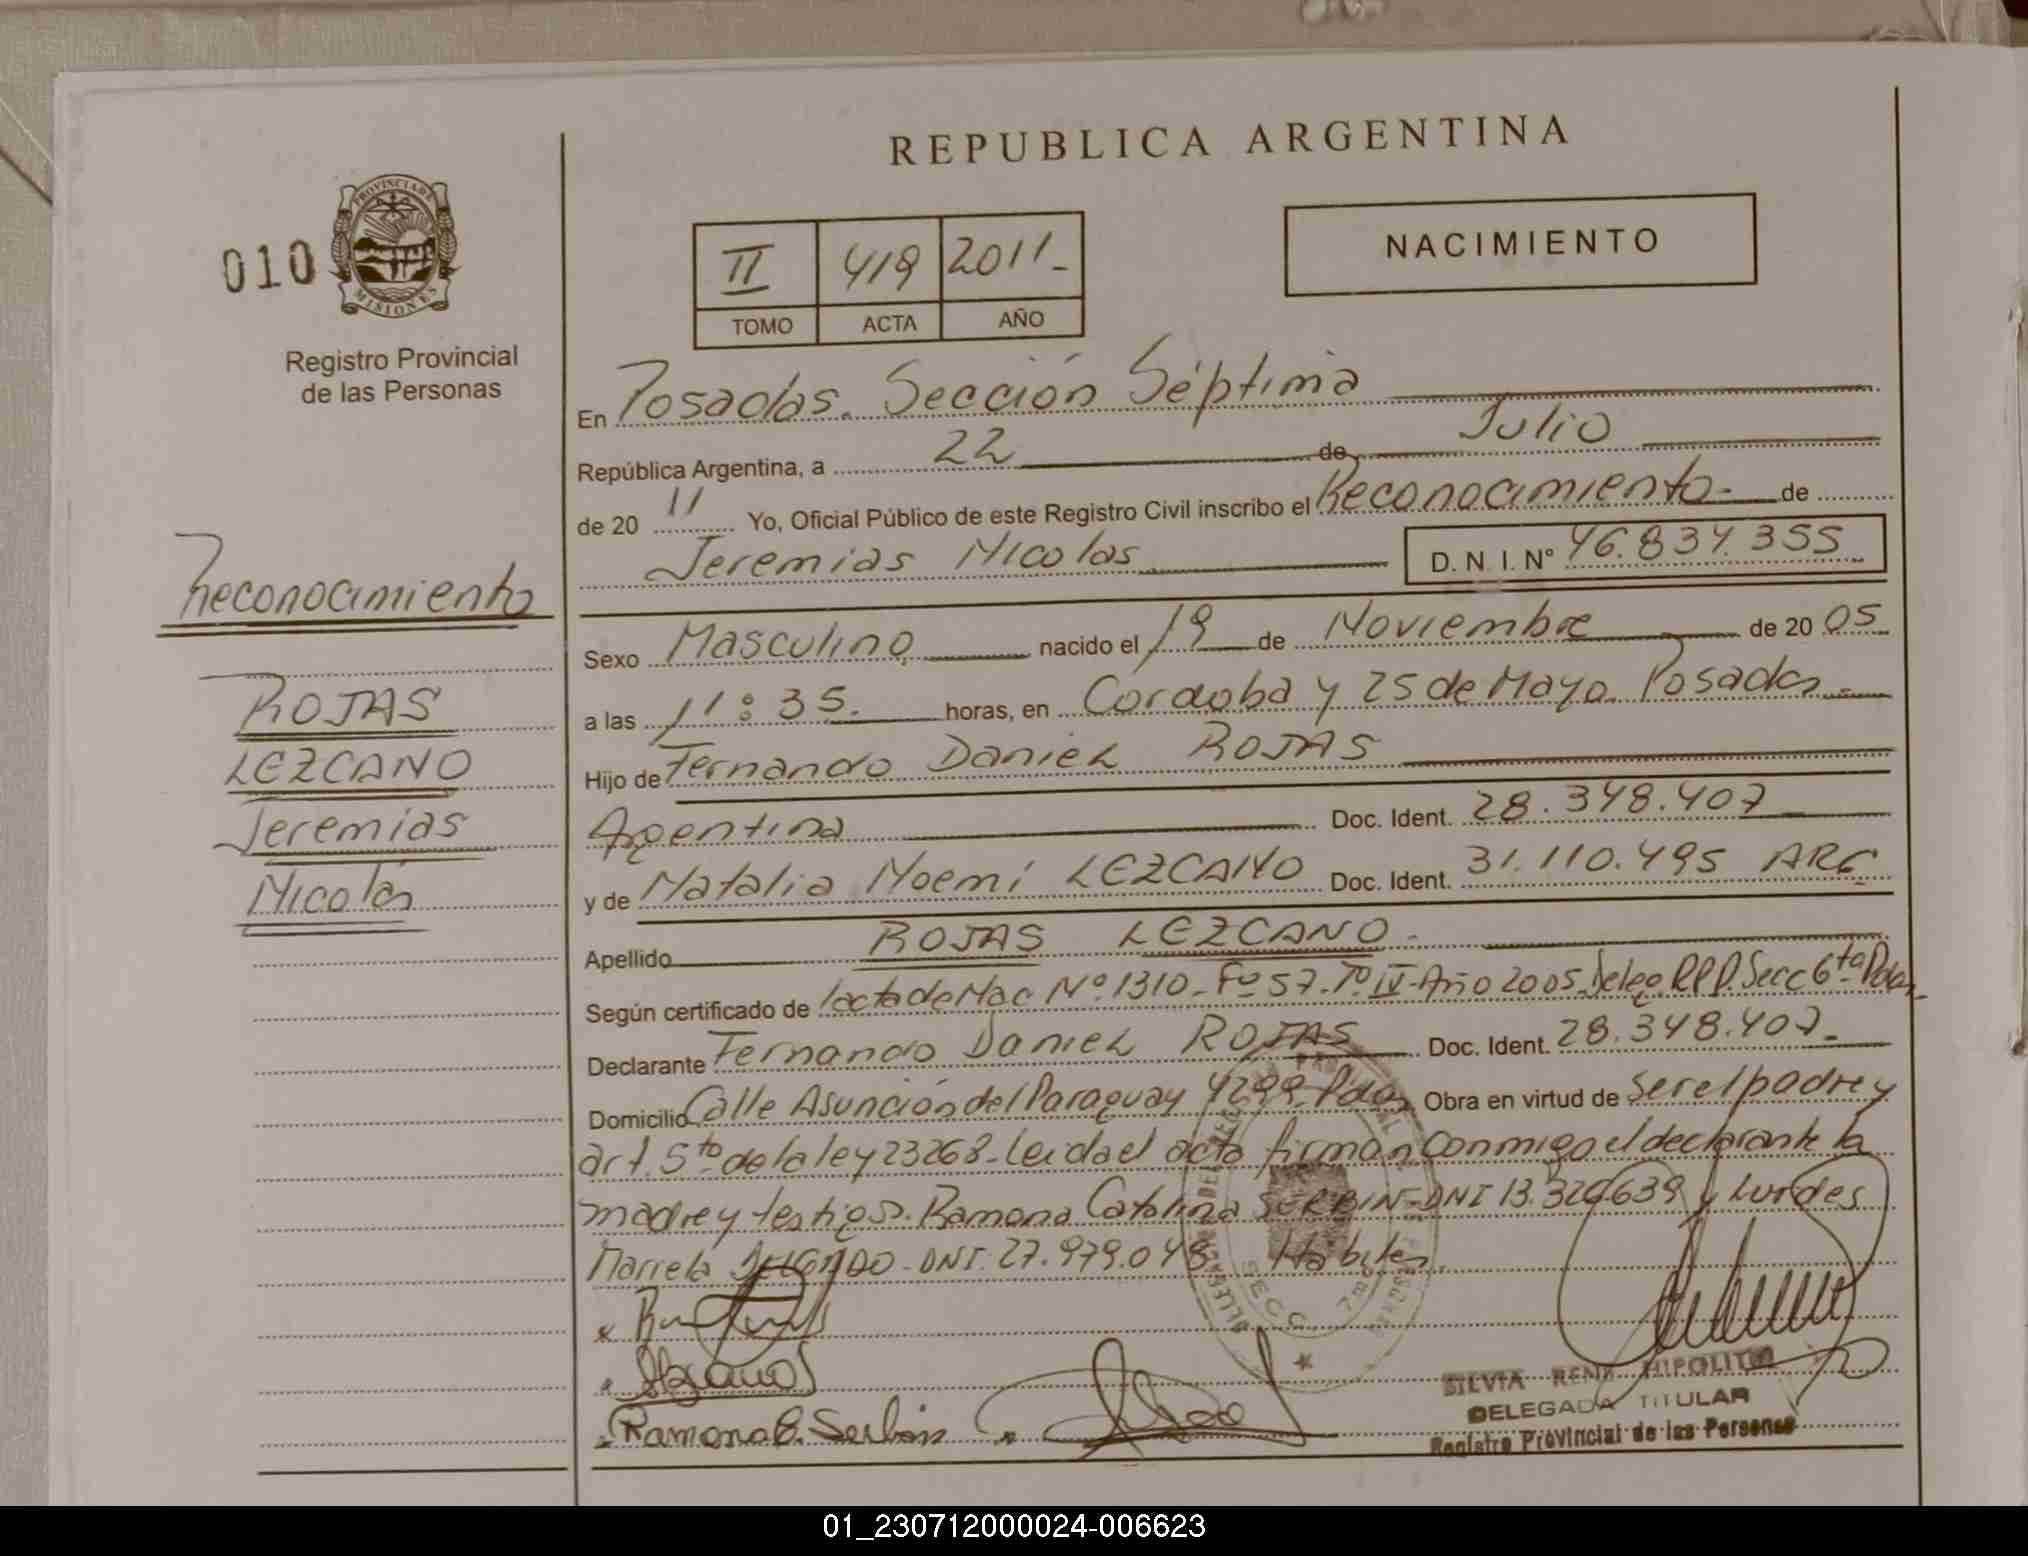 REPUBLICA ARGENTINA
010
PROVINCIA DE
MISIONES
Registro Provincial
de las Personas
II 419 2011-
TOMO ACTA AÑO
NACIMIENTO
En Posadas. Sección Séptima
República Argentina, a 22 de Julio
de 20 11 Yo, Oficial Público de este Registro Civil inscribo el Reconocimiento- de
Jeremias Nicolas D. N. I. Nº 46.834.355
Reconocimiento
ROJAS
LEZCANO
Jeremias
Nicolás
Sexo Masculino nacido el 19 de Noviembre de 20 05
a las 11:35. horas, en Cordoba y 25 de Mayo. Posadas-
Hijo de Fernando Daniel ROJAS
Argentina Doc. Ident. 28.348.407
y de Natalia Noemí LEZCANO Doc. Ident. 31.110.495 ARG
Apellido ROJAS LEZCANO-
Según certificado de acta de Nac Nº 1310-Fº 57-Tº IV-Año 2005-Deleg. RPP. Secc 6ta Pdas-
Declarante Fernando Daniel ROJAS Doc. Ident. 28.348.407-
Domicilio Calle Asunción del Paraguay 4299-Pdas Obra en virtud de ser el padre y
art. 5to de la ley 23263-Leida el acta firman conmigo el declarante la
madre y testigos. Ramona Catalina SERBIN-DNI 13.326.639 y Lurdes
Mariela DNI. 27.979.048 Habiles
SECC. 7ma
Ramona C. Serbin
SILVIA RENE HIPOLITO
DELEGADA TITULAR
Registro Provincial de las Personas
01_230712000024-006623